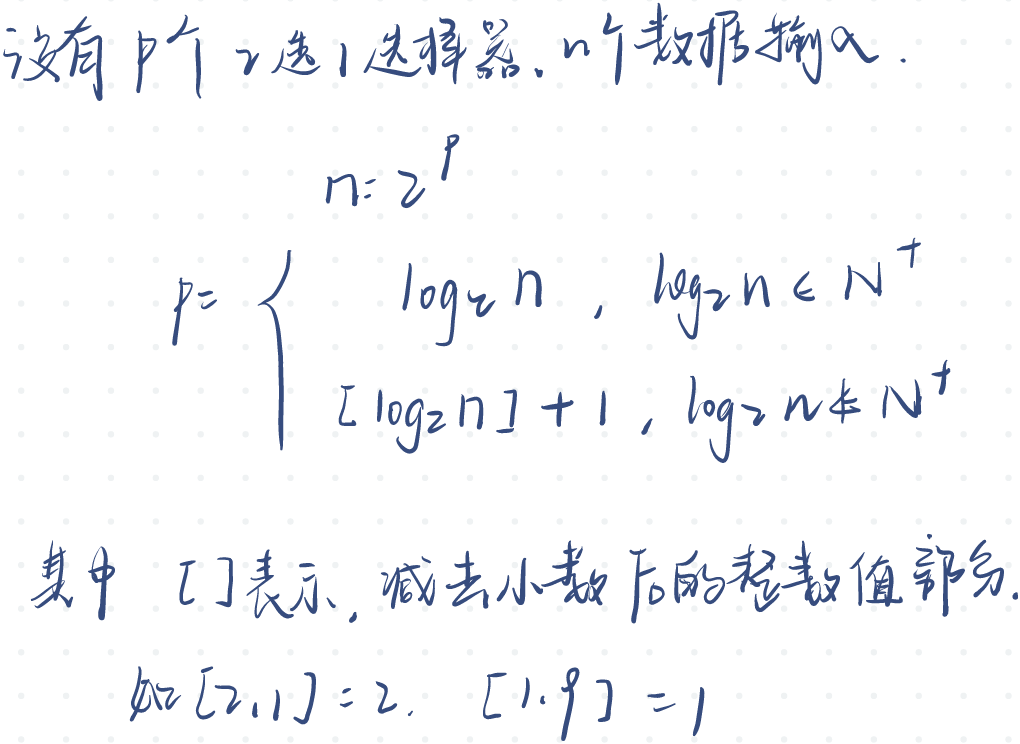 设有 p个 2选1选择器、n个数据输入.
n=2^p
p= { log₂n , log₂n ∈ N⁺
[log₂n]+1 , log₂n ∉ N⁺
其中 []表示,减去小数后的整数值部分.
如[2.1]=2. [1.9]=1